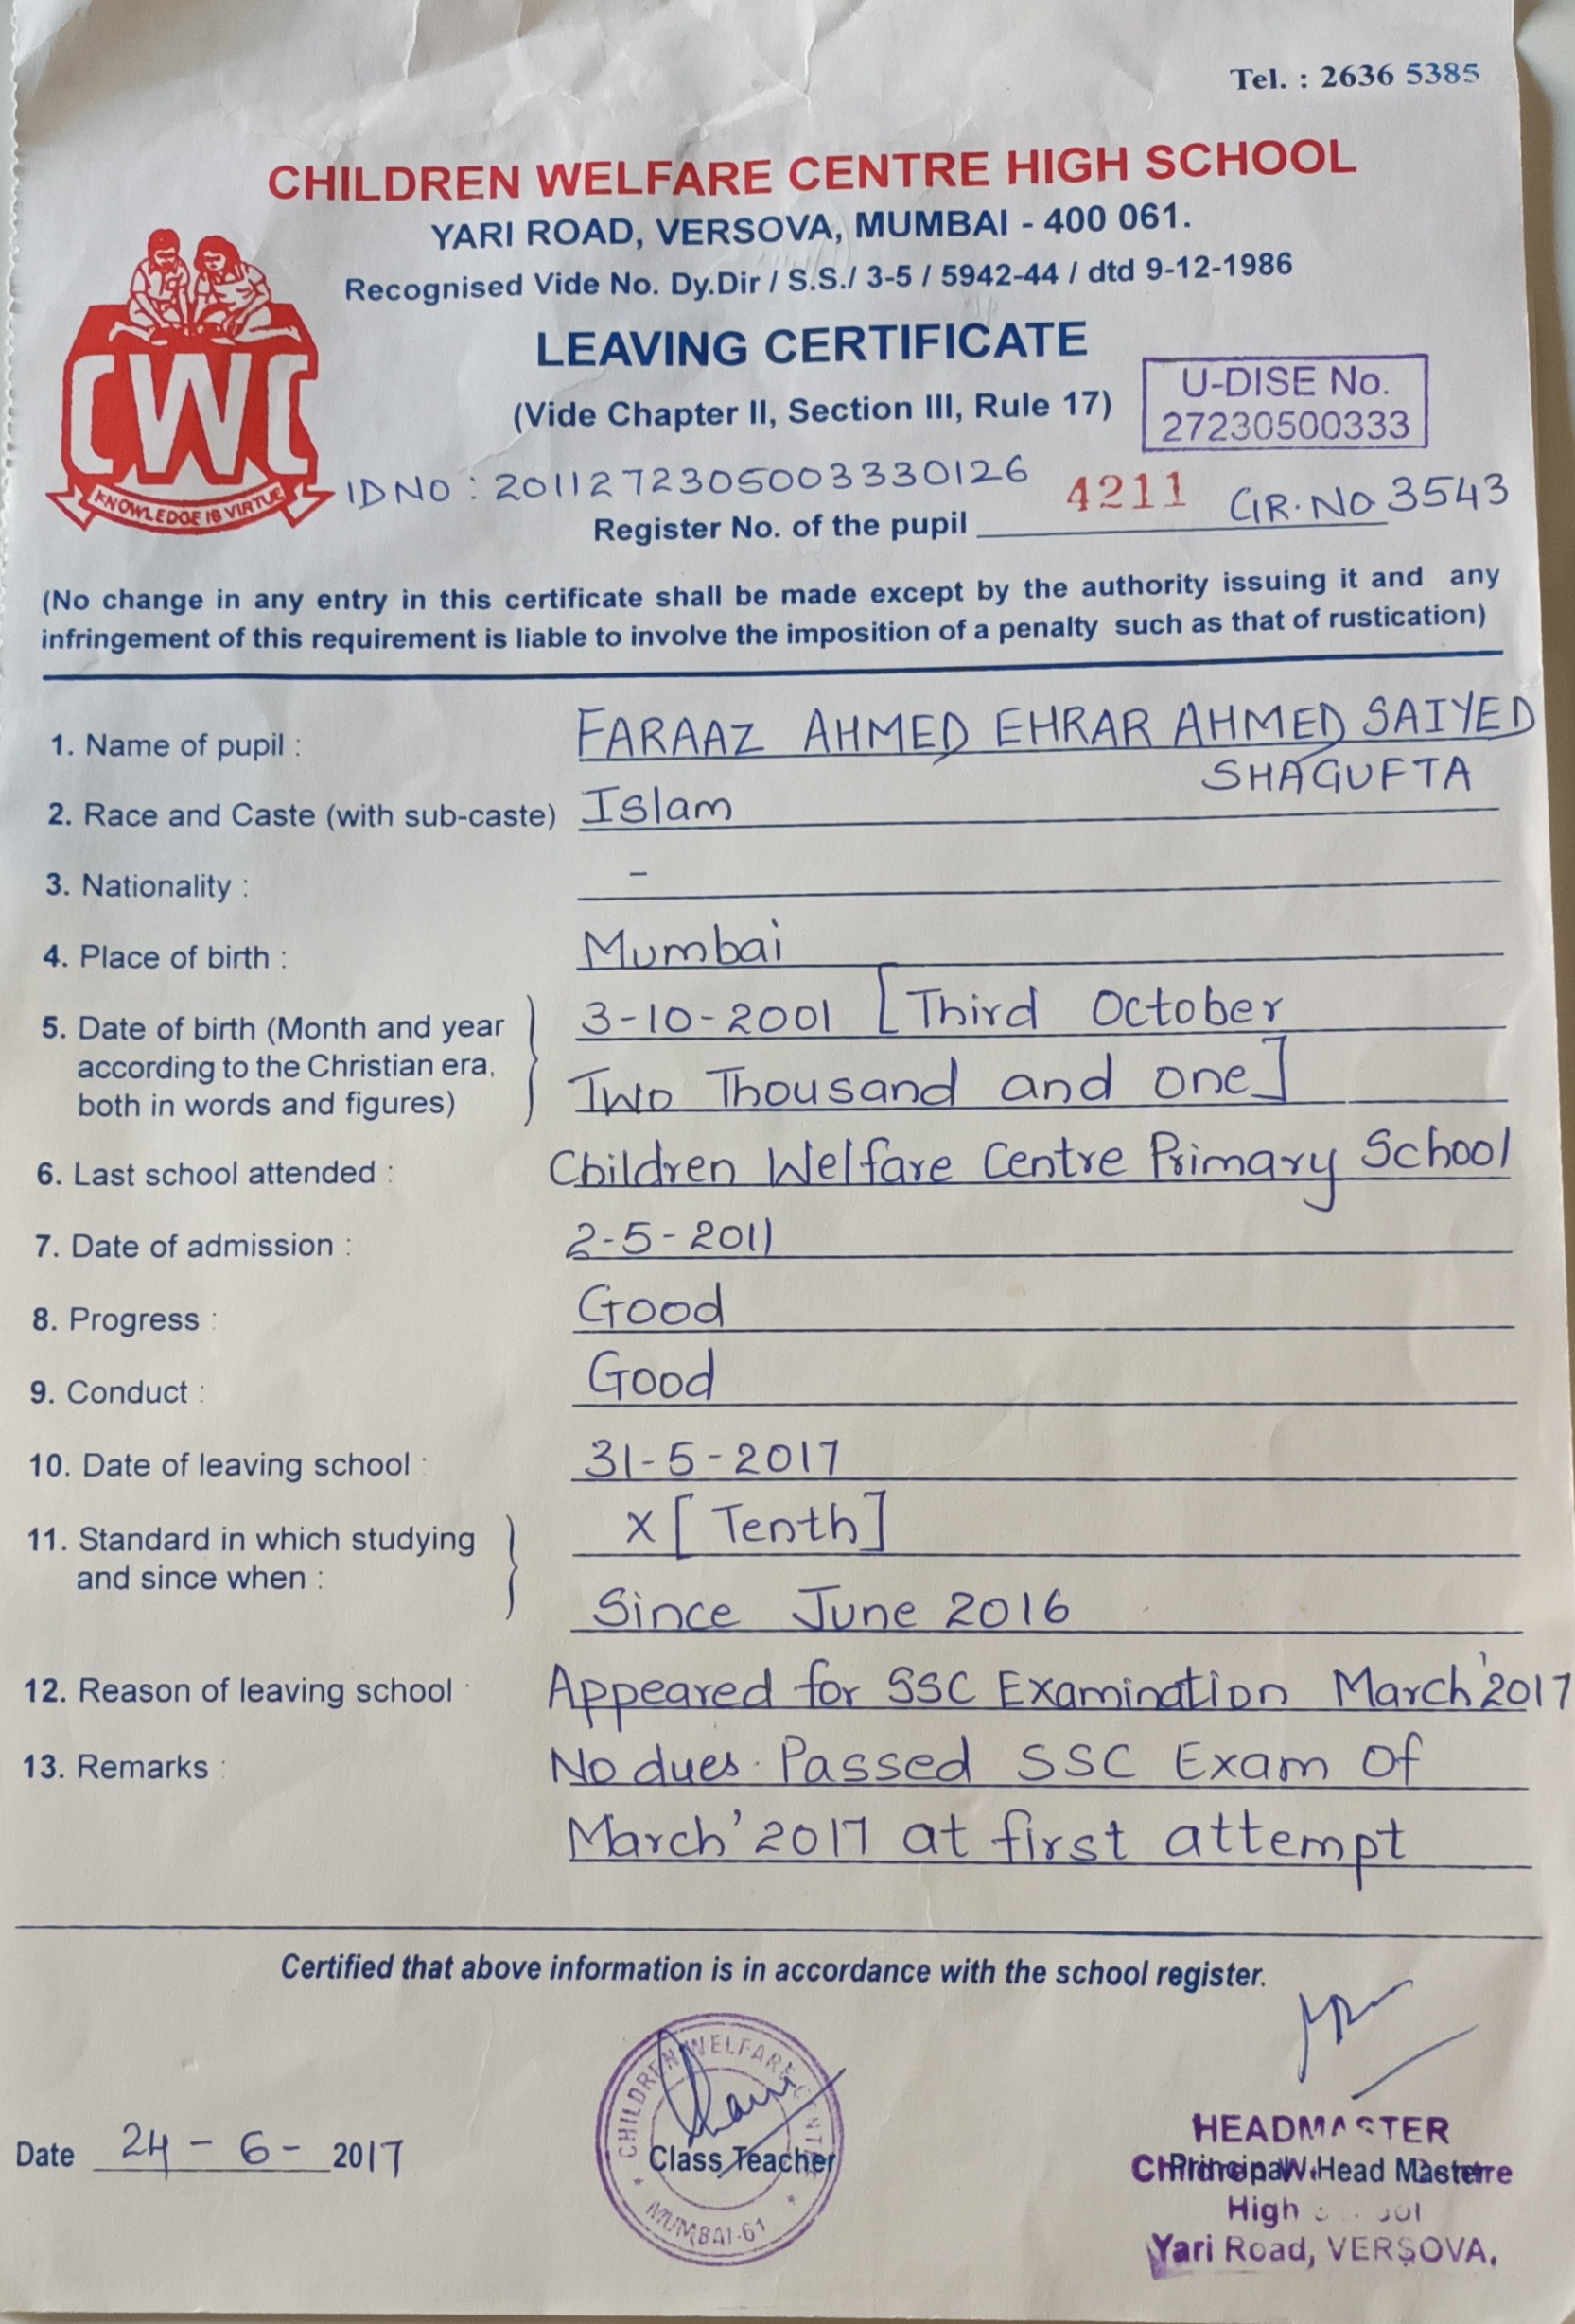 Tel. : 2636 5385
CHILDREN WELFARE CENTRE HIGH SCHOOL
YARI ROAD, VERSOVA, MUMBAI - 400 061.
Recognised Vide No. Dy.Dir / S.S./ 3-5 / 5942-44 / dtd 9-12-1986
LEAVING CERTIFICATE
(Vide Chapter II, Section III, Rule 17)
U-DISE No.
27230500333
CWC
KNOWLEDGE IS VIRTUE
ID NO : 2011272305003330126
Register No. of the pupil 4211 GR. No 3543
(No change in any entry in this certificate shall be made except by the authority issuing it and any
infringement of this requirement is liable to involve the imposition of a penalty such as that of rustication)
1. Name of pupil : FARAAZ AHMED EHRAR AHMED SAIYED
SHAGUFTA
2. Race and Caste (with sub-caste) Islam
3. Nationality : -
4. Place of birth : Mumbai
5. Date of birth (Month and year 3-10-2001 [Third October
according to the Christian era,
both in words and figures) Two Thousand and one]
6. Last school attended : Children Welfare Centre Primary School
7. Date of admission : 2-5-2011
8. Progress : Good
9. Conduct : Good
10. Date of leaving school : 31-5-2017
11. Standard in which studying X [Tenth]
and since when : Since June 2016
12. Reason of leaving school : Appeared for SSC Examination March'2017
13. Remarks : No dues. Passed SSC Exam Of
March'2017 at first attempt
Certified that above information is in accordance with the school register.
CHILDREN WELFARE CENTRE
MUMBAI-61
Date 24 - 6 - 2017
Class Teacher
HEADMASTER
Principal / Head Master
High
Yari Road, VERSOVA.